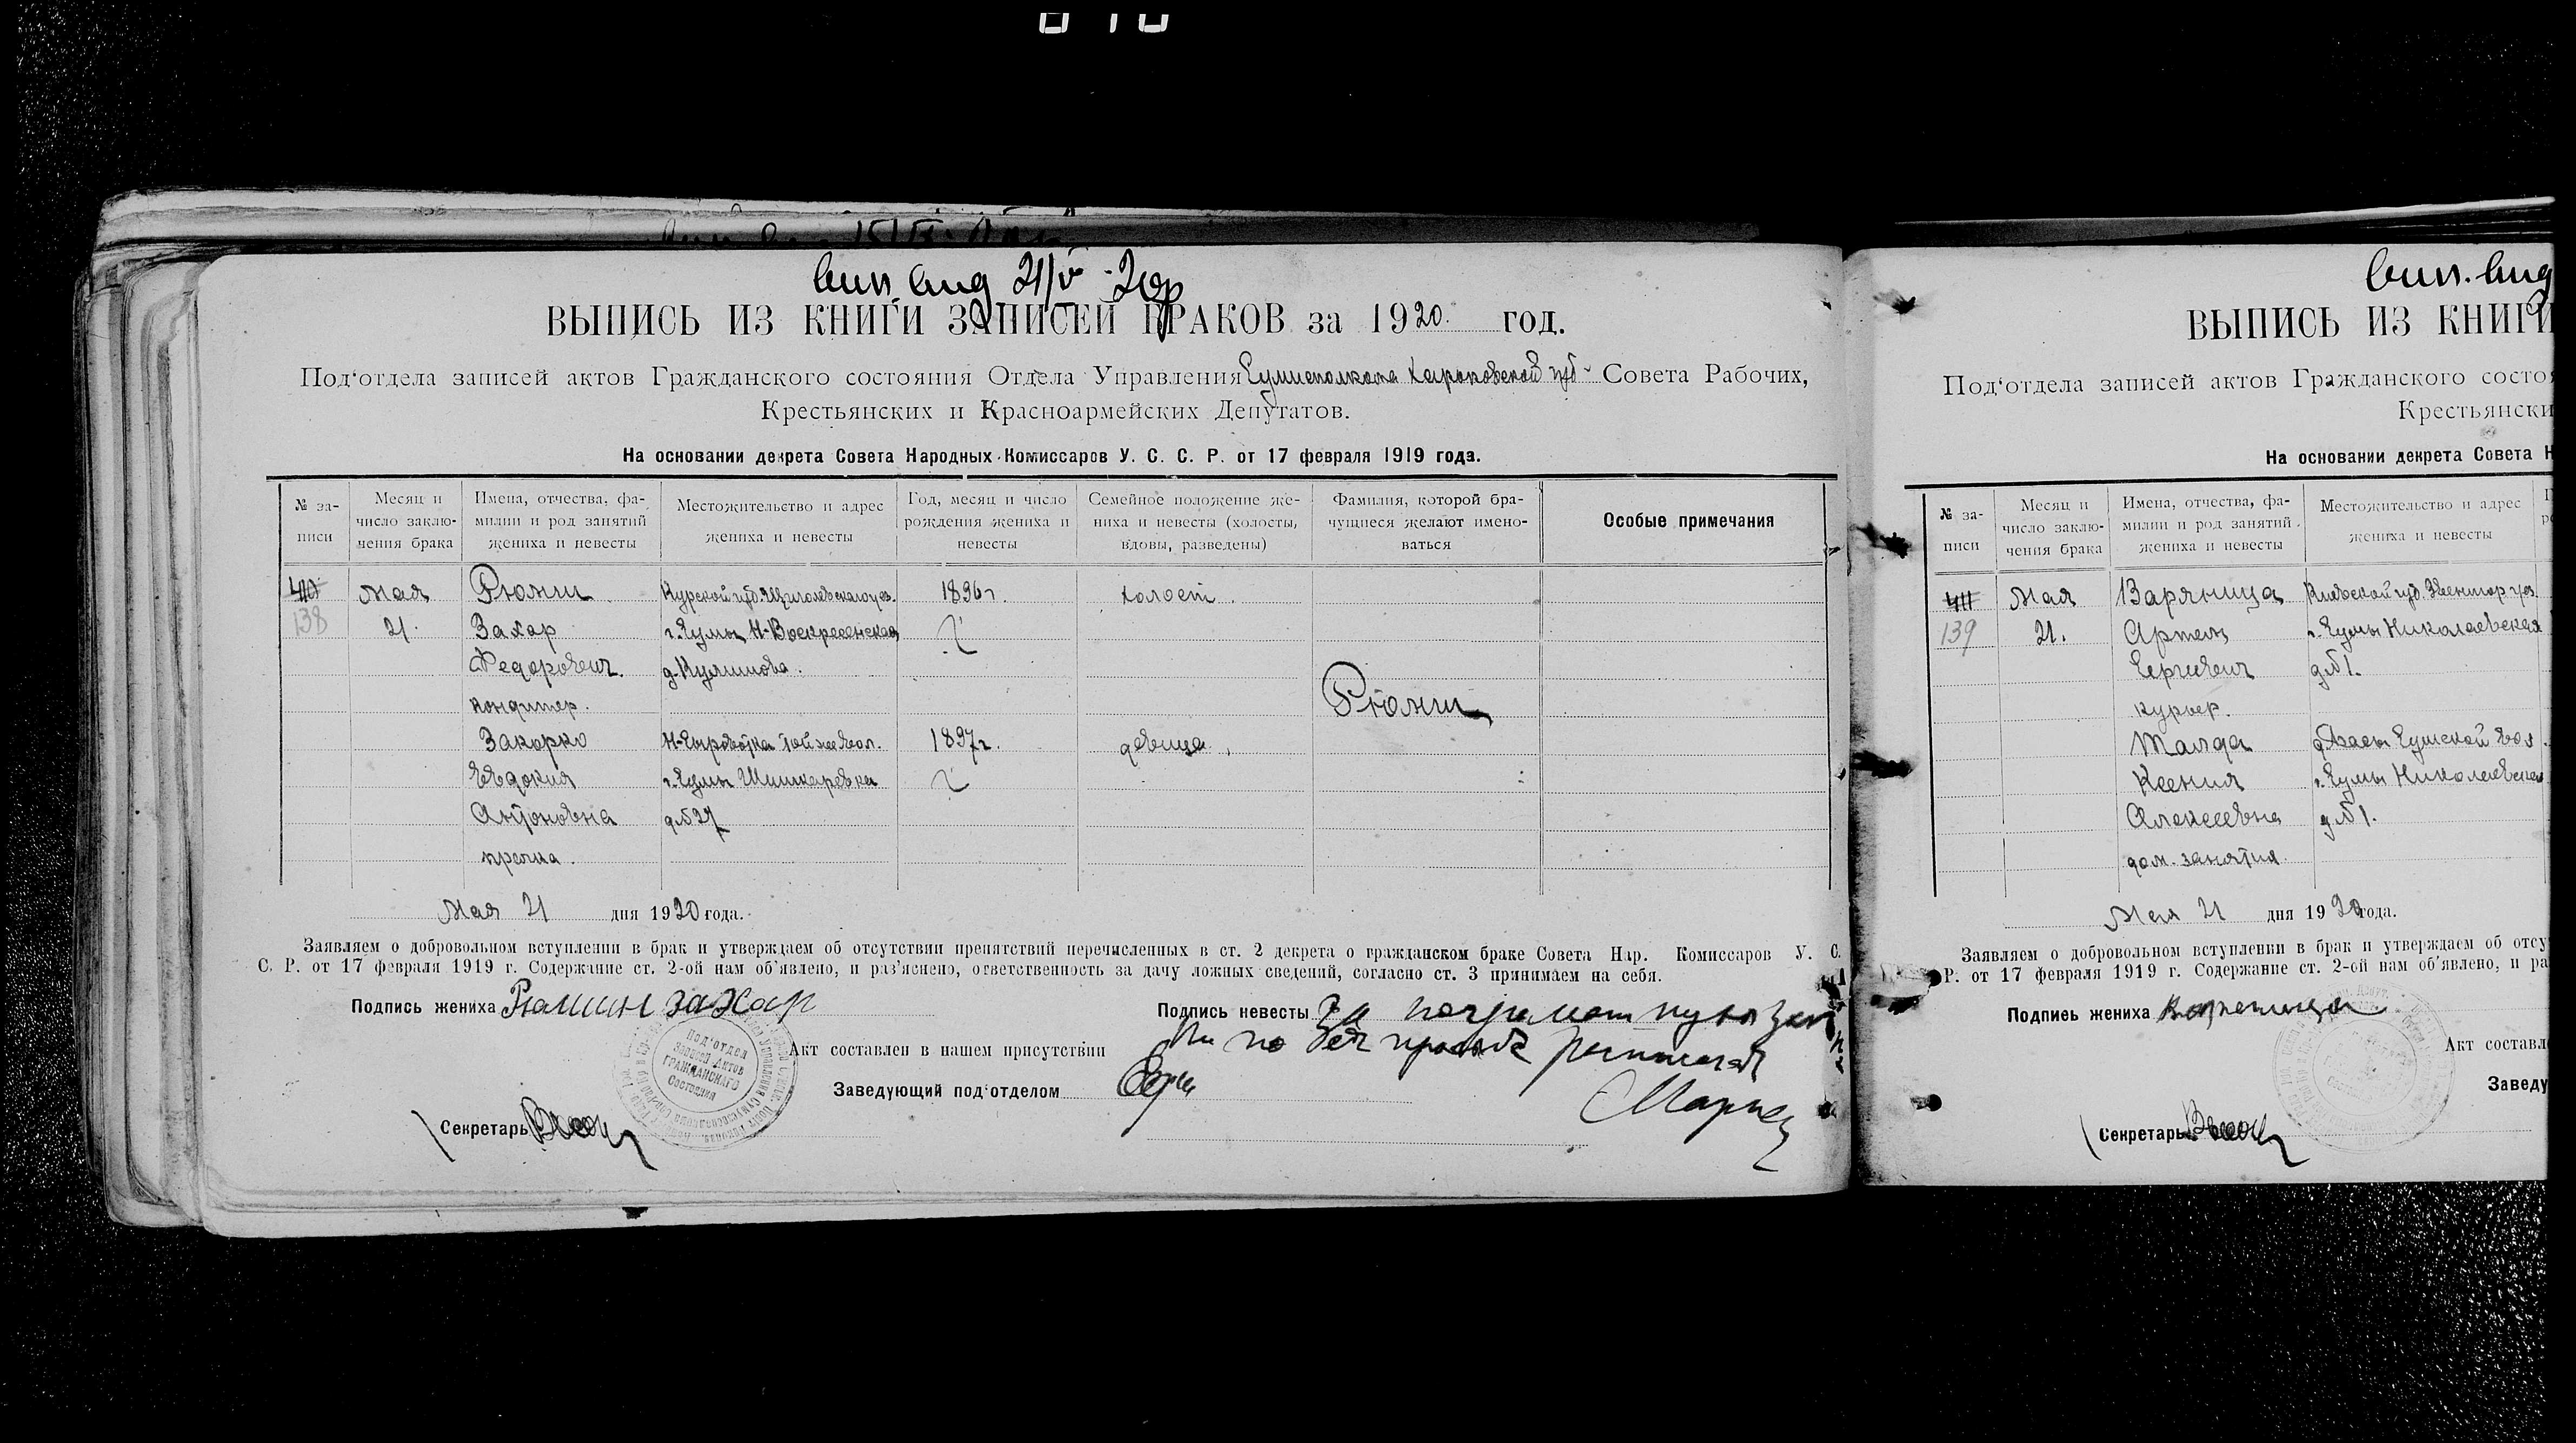 ВЫПИСЬ ИЗ КНИГИ ЗАПИСЕЙ БРАКОВ за 1920 год.
Под‘отдела записей актов Гражданского состояния Отдела Управления Харьковской губ Совета Рабочих,
Крестьянских и Красноармейских Депутатов.
На основании декрета Совета Народных Комиссаров У. С. С. Р. от 17 февраля 1919 года.
№ записи
Месяц и
число заклю-
чения брака
Имена, отчества, фа-
милии и род занятий
жениха и невесты
Местожительство и адрес
жениха и невесты
Год, месяц и число
рождения жениха и
невесты
Семейное положение же-
ниха и невесты (холосты,
вдовы, разведены)
Фамилия, которой бра-
чущиеся желают имено-
ваться
Особые примечания
410
138
Мая
21.
Захар
Федорович.
кондитер.
Курской губ. Щигровского уез.
г. Сумы Н-Воскресенская
1896 г.
холост.
Закорко
Евдокия
Антоновна
прачка.
Н-Сыроватка той же вол.
г. Сумы
д №27
1897 г.
девица.
Мая 21 дня 1920 года.
Заявляем о добровольном вступлении в брак и утверждаем об отсутствии препятствий перечисленных в ст. 2 декрета о гражданском браке Совета Нар. Комиссаров У. С.
С. Р. от 17 февраля 1919 г. Содержание ст. 2-ой нам об‘явлено, и раз‘яснено, ответственность за дачу ложных сведений, согласно ст. 3 принимаем на себя.
Подпись жениха Захар
Подпись невесты За неграмотную
по её просьбе
Акт составлен в нашем присутствии
Под‘отдел
Записей Актов
ГРАЖДАНСКАГО
Состояния
Заведующий под‘отделом
Секретарь
ВЫПИСЬ ИЗ КНИГИ
Под‘отдела записей актов Гражданского состоя
Крестьянски
На основании декрета Совета Н
№ записи
Месяц и
число заклю-
чения брака
Имена, отчества, фа-
милии и род занятий
жениха и невесты
Местожительство и адрес
жениха и невесты
411
139
Мая
21.
Варяница
Артем
Сергиевич
курьер.
Киевской губ. Звенигор уез.
г. Сумы Николаевская
д №1.
Ксения
Алексеевна
дом. занятия
Сумской вол.
г. Сумы Николаевская
д №1.
Мая 21 дня 1920 года.
Заявляем о добровольном вступлении в брак и утверждаем об отсу
Р. от 17 февраля 1919 г. Содержание ст. 2-ой нам об‘явлено, и ра
Подпись жениха
Акт составл
Заведу
Секретарь